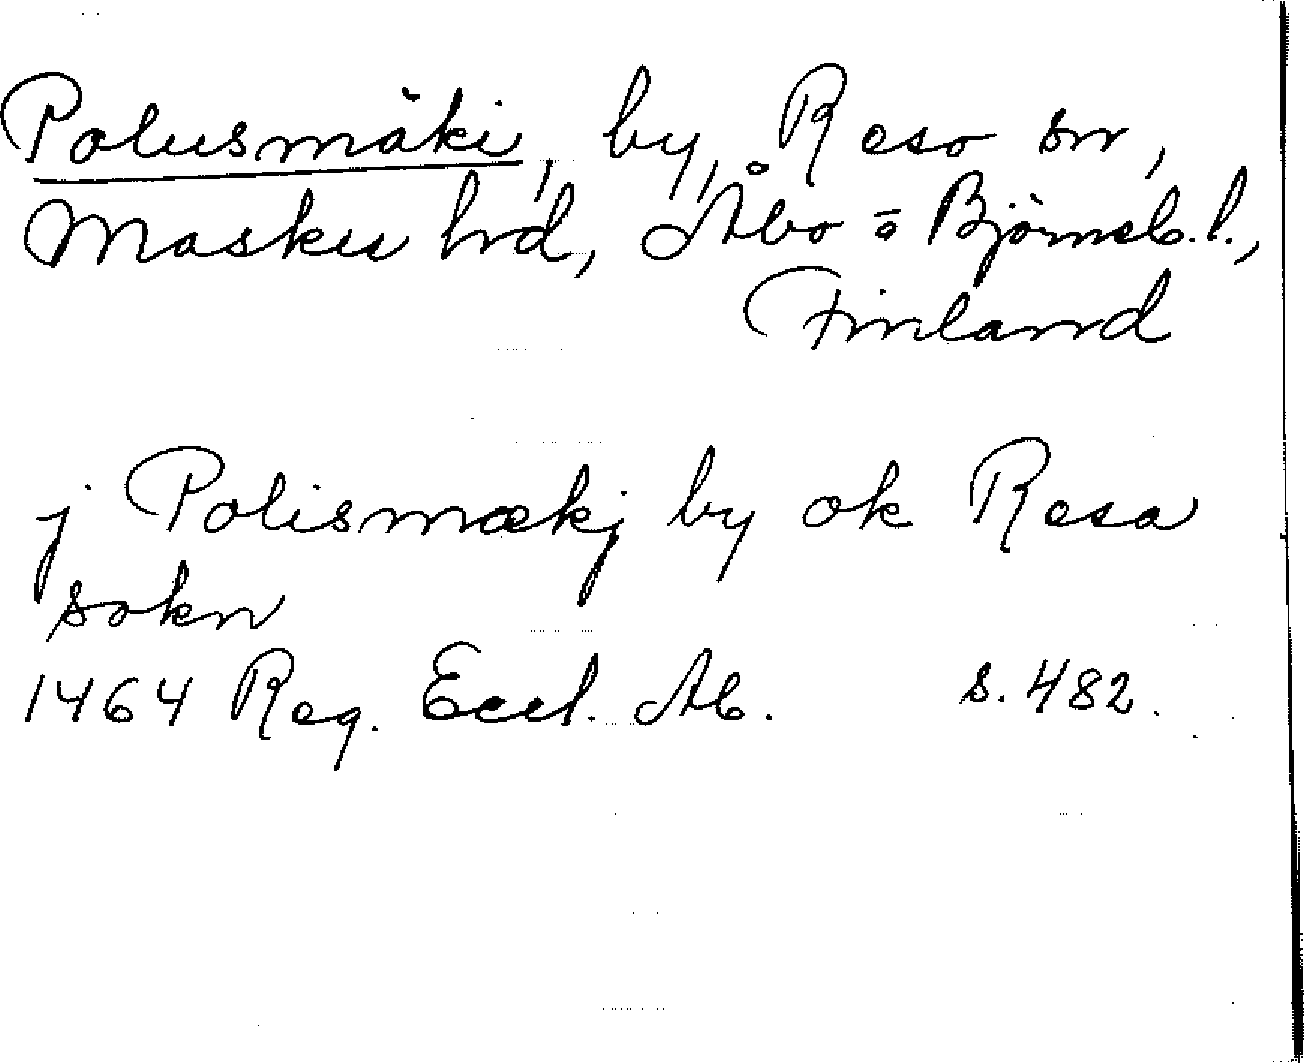 Polusmäki, by, Reso sn,
Masku hrd, Åbo o Björneb. l.,
Finland
j Polismækj by ok Resa
sokn
1464 Reg. Eccl. Ab. s. 482.